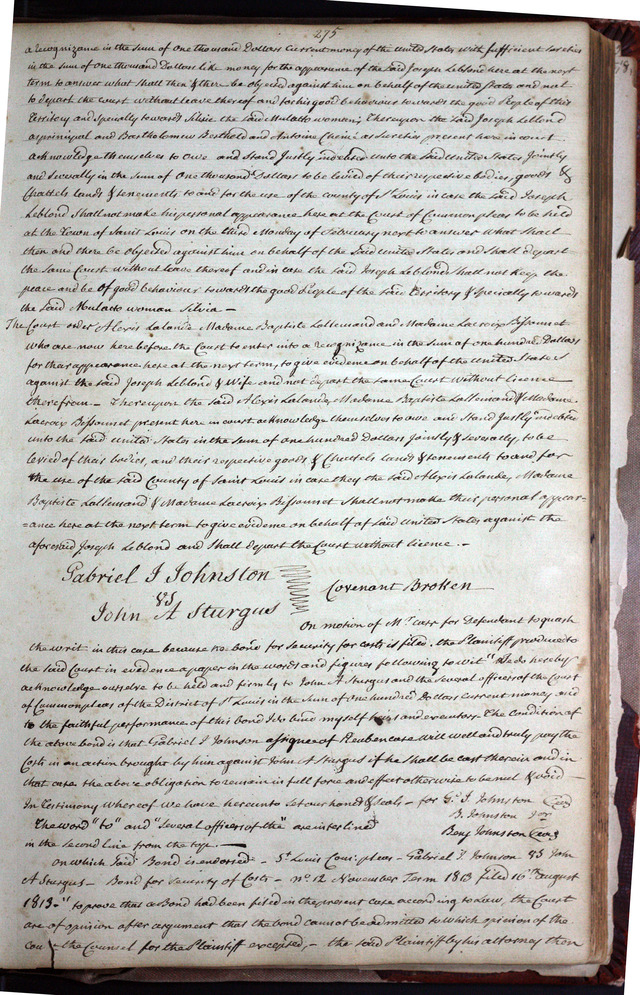 275
a recognizance in the sum of one thousand Dollars Current money of the united States with sufficient Sureties
in the sum of one thousand Dollars like money for the appearance of the said Joseph Leblond here at the next
term to answer what shall then & there be objected against him on behalf of the united States and not
to depart the Court without leave thereof and to his good behaviour towards the good People of this
Territory and specially towards Silvia the said Mulatto woman; Thereupon the said Joseph Leblond
as principal and Bartholomew Berthold and Antoine Chenie as Sureties present here in court
acknowledge themselves to owe and Stand Justly indebted unto the said united States Jointly
and Severally in the Sum of One thousand Dollars to be levied of their respective bodies, goods &
Chattels lands & tenements to and for the use of the county of St Louis in case the said Joseph
Leblond Shall not make his personal appearance here at the Court of Common pleas to be held
at the Town of Saint Louis on the third Monday of February next to answer what shall
then and there be objected against him on behalf of the Said united States and shall depart
the same Court without leave thereof and in case the said Joseph Leblond Shall not keep the
peace and be of good behaviour towards the good People of the said Territory & specially towards
the said Mulatto woman Silvia —
The Court order Alexis Lalande Madame Baptiste Lallemand and Madame Lacroix Bissonnet
who are now here before the Court to enter into a recognizance in the sum of one hundred Dollars
for their appearance here at the next term, to give evidence on behalf of the united States
against the said Joseph Leblond & Wife and not depart the same Court without licence
therefrom — Thereupon the said Alexis Lalande, Madame Baptiste Lallemand & Madame
Lacroix Bissonnet present here in court acknowledge themselves to owe and Stand Justly indebted
unto the said united States in the sum of one hundred Dollars Jointly & severally, to be
levied of their bodies, and their respective goods & Chattels lands & tenements to and for
the use of the said County of Saint Louis in case they the said Alexis Lalande, Madame
Baptiste Lallemand & Madame Lacroix Bissonnet Shall not make their personal appear-
=ance here at the next term to give evidence on behalf of said united States against the
aforesaid Joseph Leblond and shall depart the Court without licence. —
Gabriel J Johnston
vs Covenant Broken
John A Sturgus
On motion of Mr Carr for Defendant to quash
the writ in this case because no bond for security for costs is filed. the Plaintiff produced to
the said Court in evidence a paper in the words and figures following to wit "We do hereby
acknowledge ourselve to be held and firmly to John A Sturgus and the several officers of the Court
of Common pleas of the District of St Louis in the sum of one hundred Dollars current money and
to the faithful performance of this bond I do bind myself and executors. The Condition of
the above bond is that Gabriel J Johnson assignee of Reuben case will well and truly pay the
Costs in an action brought by him against John A Sturgus if he shall be cast therein and in
that case the above obligation to remain in full force and effect otherwise to be null & void —
In Testimony whereof we have hereunto set our hands & seals — for G. J. Johnston
B. Johnston Jr
The word "to" and "several officers of the" are interlined Benj Johnston
in the second line from the top. —
On which said Bond is endorsed — St Louis Com: pleas — Gabriel J. Johnson vs John
A Sturgus — Bond for security of Costs — no 12 November Term 1813 filed 10th august
1813 —" to prove that a Bond had been filed in the present case according to Law, the Court
are of opinion after argument that the bond cannot be admitted to which opinion of the
the Counsel for the Plaintiff excepted, — the said Plaintiff by his attorney then